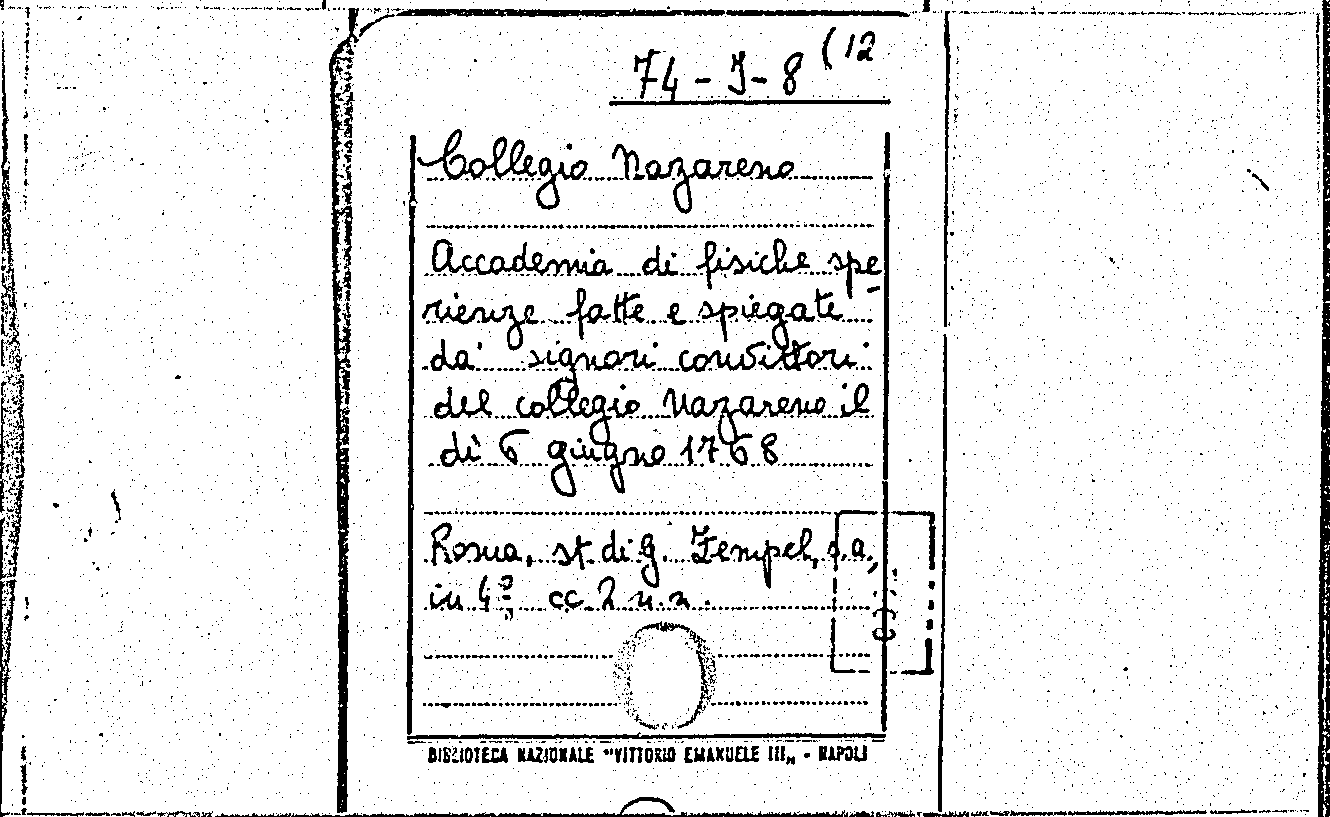 74-J-8 (12
Collegio Nazareno
Accademia di fisiche spe
rienze fatte e spiegate
da' signori convittori
del collegio Nazareno il
dì 6 giugno 1768
Roma, st. di G. Zempel, s.a.,
in 4º, cc. 2 n.n.
BIBLIOTECA NAZIONALE "VITTORIO EMANUELE III„ - NAPOLI